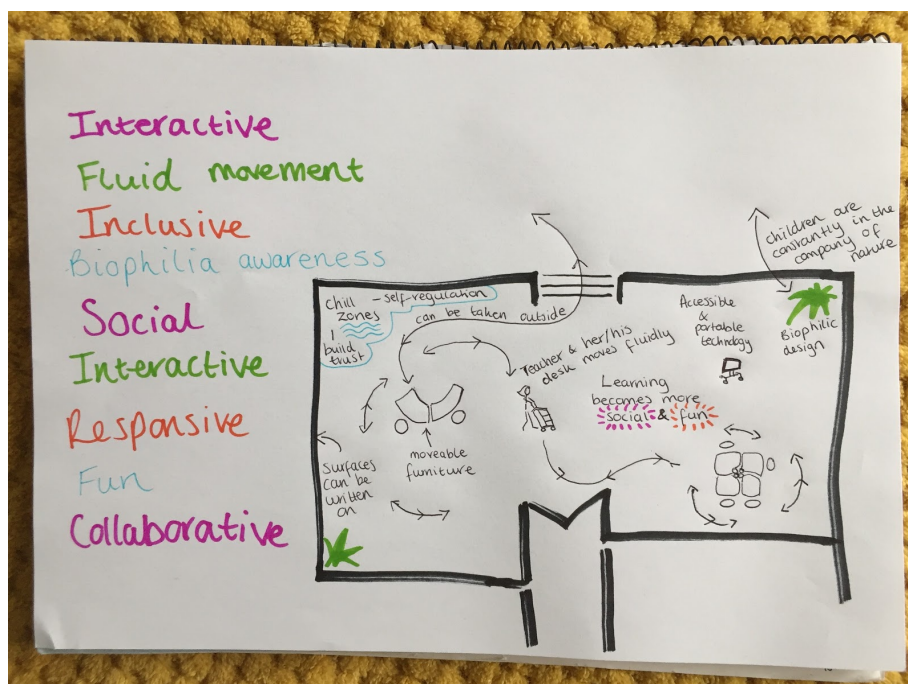 Interactive
Fluid movement
Inclusive
Biophilia awareness
Social
Interactive
Responsive
Fun
Collaborative
chill
zones
build
trust
- self-regulation
can be taken outside
Teacher & her/his
desk moves fluidly
Accessible
&
portable
technology
children are
constantly in the
company of
nature
Biophilic
design
Learning
becomes more
social & fun
moveable
furniture
Surfaces
can be
written
on